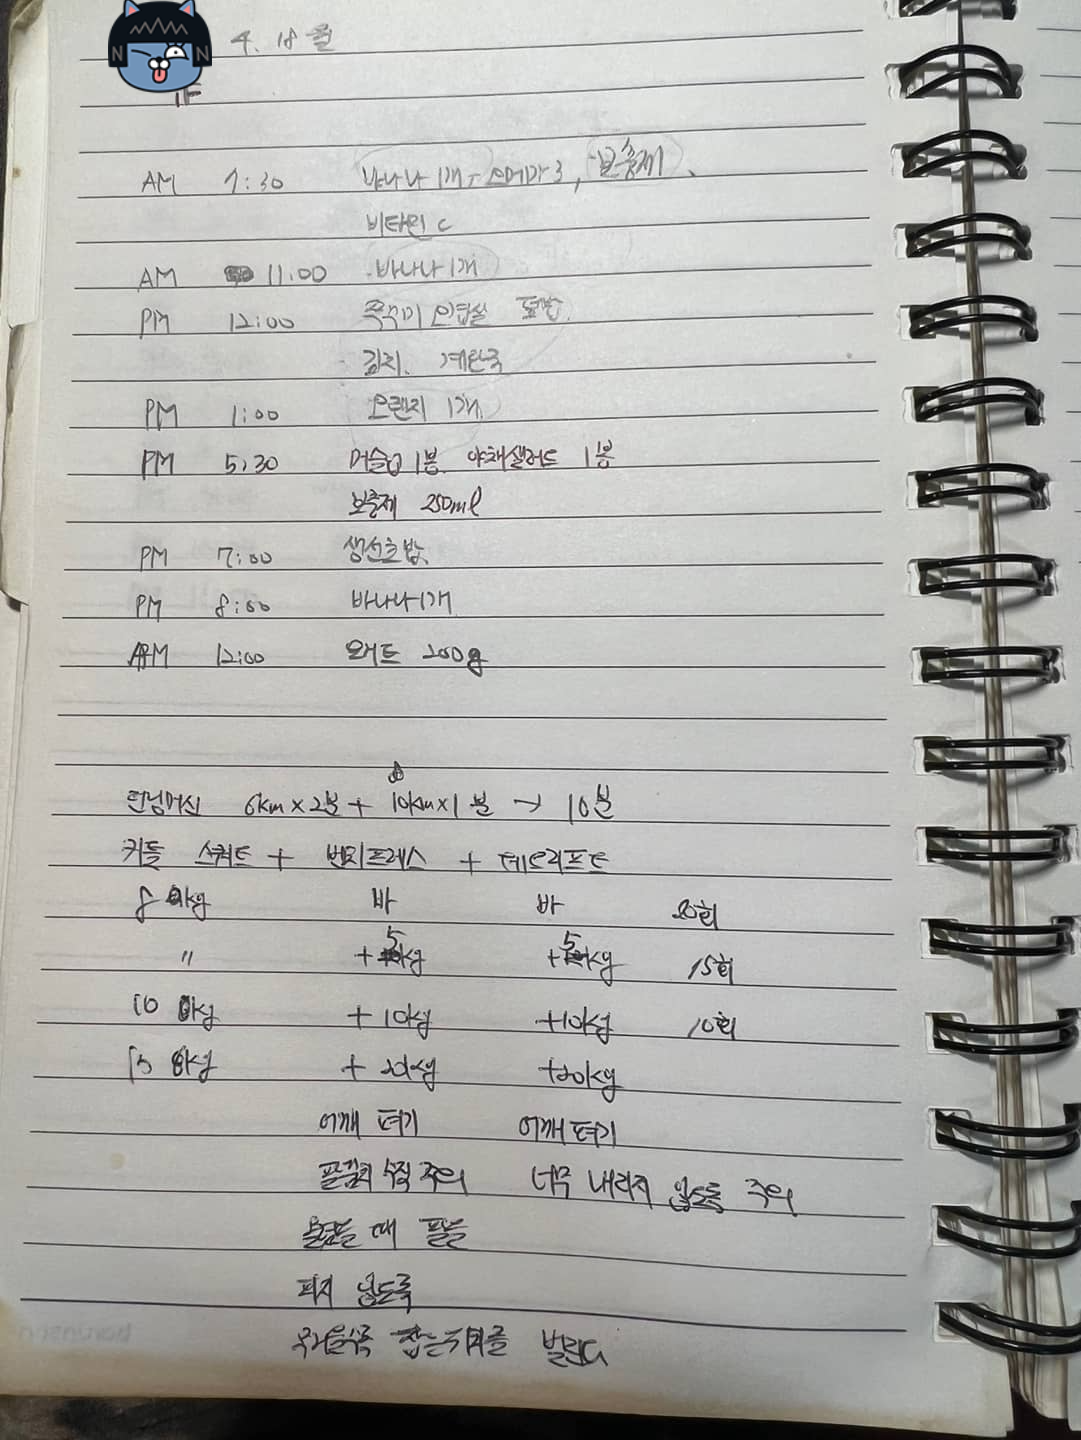 4. 18 월
AM 7:30 바나나 1개, 오메가3, 보충제,
비타민 C
AM 11:00 바나나 1개
PM 12:00 쭈꾸미 삼겹살 덮밥,
김치, 계란국
PM 1:00 오렌지 1개
PM 5:30 머슬업 1봉 야채샐러드 1봉
보충제 250ml
PM 7:00 생선초밥,
PM 8:00 바나나 1개
12:00 200g
런닝머신 6km×2분 + 10km×1분 → 10분
커틀 스쿼트 + 벤치프레스 + 데드리프트
8 kg 바 바 20회
" +5kg +5kg 15회
10 kg +10kg +10kg 10회
15 kg +20kg +20kg
어깨 펴기 어깨 펴기
팔꿈치 수직 주의 너무 내리지 않도록 주의
때 팔을
펴지 않도록
무거울수록 잡는 위치를 벌린다